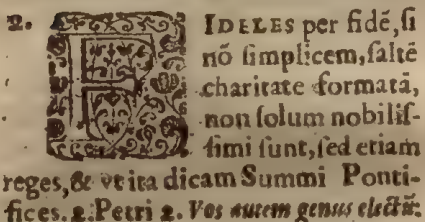 2. FIDELES per fidē, ſi
nō ſimplicem, ſaltē
charitate formatā,
non ſolum nobiliſ-
ſimi ſunt, ſed etiam
reges, & vt ita dicam Summi Ponti-
fices. 2. Petri 2. Vos autem genus electū: